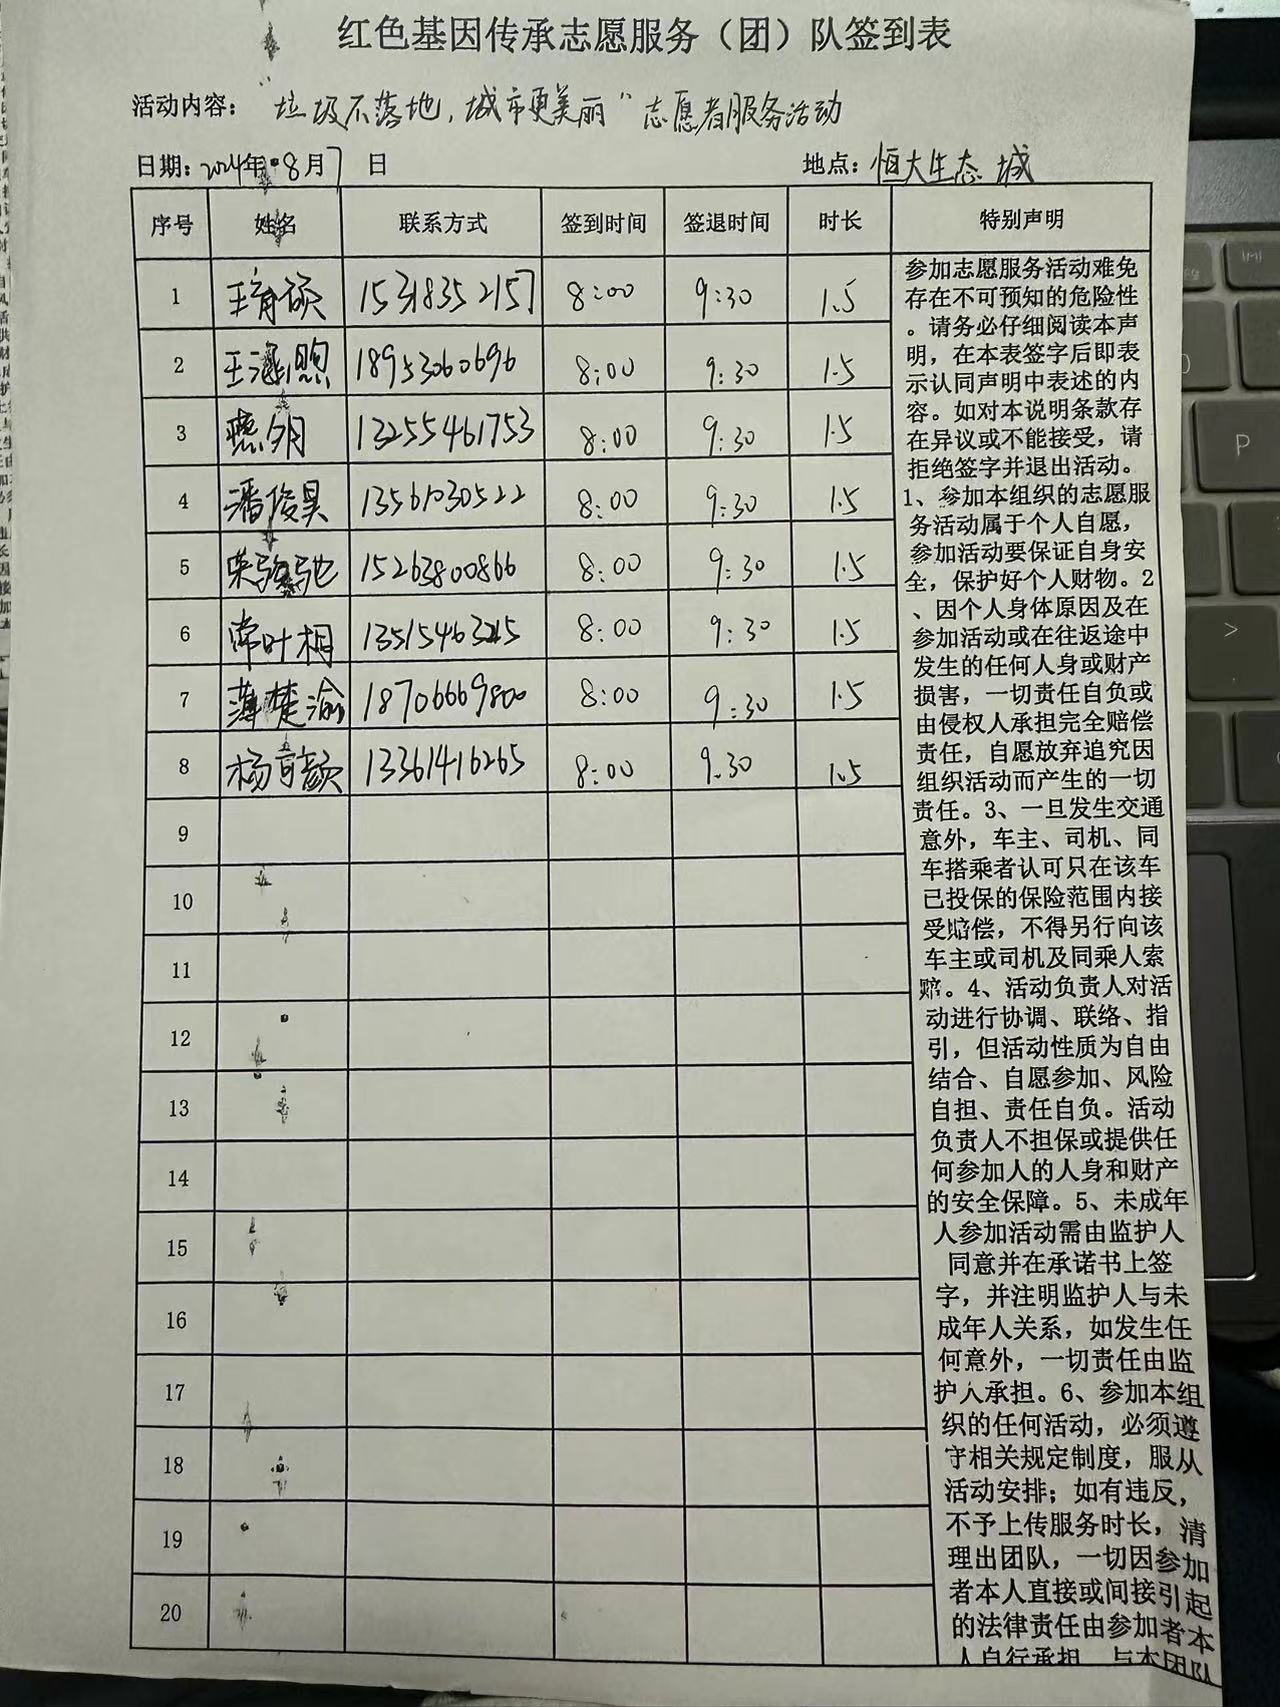 红色基因传承志愿服务（团）队签到表
活动内容：“垃圾不落地，城市更美丽”志愿者服务活动
日期：2024年8月7日 地点：恒大生态城
序号 姓名 联系方式 签到时间 签退时间 时长 特别声明
1 王育硕 15318352157 8:00 9:30 1.5
2 18953060696 8:00 9:30 1.5
3 13255461753 8:00 9:30 1.5
4 潘俊昊 8:00 9:30 1.5
5 15263800866 8:00 9:30 1.5
6 常叶桐 8:00 9:30 1.5
7 薄楚渝 18706669800 8:00 9:30 1.5
8 杨可颜 13361416265 8:00 9.30 1.5
9
10
11
12
13
14
15
16
17
18
19
20
参加志愿服务活动难免
存在不可预知的危险性
。请务必仔细阅读本声
明，在本表签字后即表
示认同声明中表述的内
容。如对本说明条款存
在异议或不能接受，请
拒绝签字并退出活动。
1、参加本组织的志愿服
务活动属于个人自愿，
参加活动要保证自身安
全，保护好个人财物。2
、因个人身体原因及在
参加活动或在往返途中
发生的任何人身或财产
损害，一切责任自负或
由侵权人承担完全赔偿
责任，自愿放弃追究因
组织活动而产生的一切
责任。3、一旦发生交通
意外，车主、司机、同
车搭乘者认可只在该车
已投保的保险范围内接
受赔偿，不得另行向该
车主或司机及同乘人索
赔。4、活动负责人对活
动进行协调、联络、指
引，但活动性质为自由
结合、自愿参加、风险
自担、责任自负。活动
负责人不担保或提供任
何参加人的人身和财产
的安全保障。5、未成年
人参加活动需由监护人
同意并在承诺书上签
字，并注明监护人与未
成年人关系，如发生任
何意外，一切责任由监
护人承担。6、参加本组
织的任何活动，必须遵
守相关规定制度，服从
活动安排；如有违反，
不予上传服务时长，清
理出团队，一切因参加
者本人直接或间接引起
的法律责任由参加者本
人自行承担，与本团队
P
>